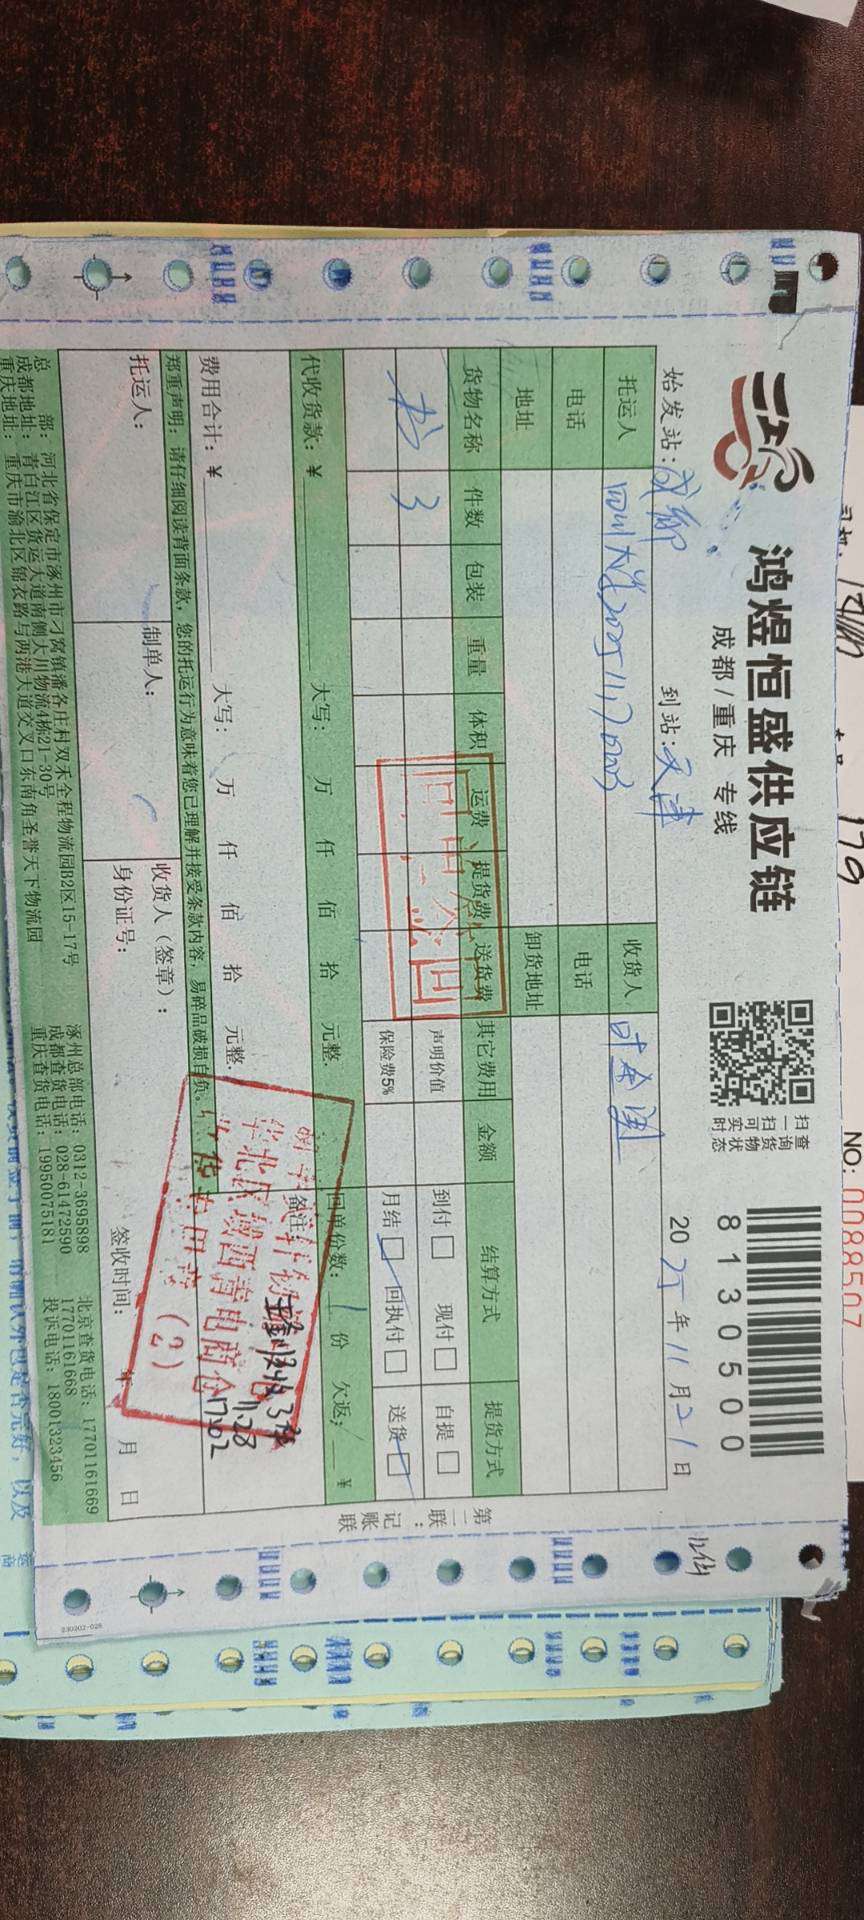 鸿煜恒盛供应链
成都/重庆 专线
扫一扫
查询货物
实时状态
8130500
始发站：成都 到站：天津 2025年11月21日
托运人 四川大学2025111703 收货人
电话 电话
地址 卸货地址
货物名称 件数 包装 重量 体积 运费 提货费 送货费 其它费用 金额 结算方式 提货方式
书 3 声明价值 到付□ 现付□ 自提□
保险费5% 月结□ 回执付□ 送货□
代收货款：¥ 大写： 万 仟 佰 拾 元整. 回单份数：1份 欠返：¥
费用合计：¥ 大写： 万 仟 佰 拾 元整. 备注
郑重声明：请仔细阅读背面条款，您的托运行为意味着您已理解并接受条款内容，易碎品破损自负。
华北区域西青电商仓
(2)
实收3件
11.28
托运人： 制单人： 收货人（签章）：
身份证号： 签收时间： 年 月 日
总 部：河北省保定市涿州市刁窝镇潘各庄村双禾全程物流园B2区15-17号 涿州总部电话：0312-3695898 北京查货电话：17701161669
成都地址：青白江区货运大道南侧大川物流4栋21-30号 成都查货电话：028-61472590 17701161668
重庆地址：重庆市渝北区锦衣路与两港大道交叉口东南角圣誉天下物流园 重庆查货电话：19950075181 投诉电话：18001323456
第二联：记账联
NO: 0088507
179